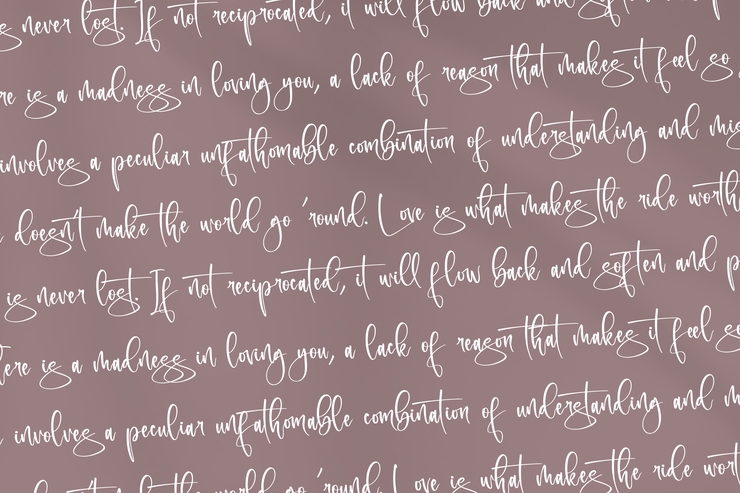 s never lost. If not reciprocated, it will flow back and soften
re is a madness in loving you, a lack of reason that makes it feel so
involves a peculiar unfathomable combination of understanding and mis
doesn't make the world go 'round. Love is what makes the ride worth
is never lost. If not reciprocated, it will flow back and soften and p
here is a madness in loving you, a lack of reason that makes it feel so
involves a peculiar unfathomable combination of understanding and m
world go 'round. Love is what makes the ride wort